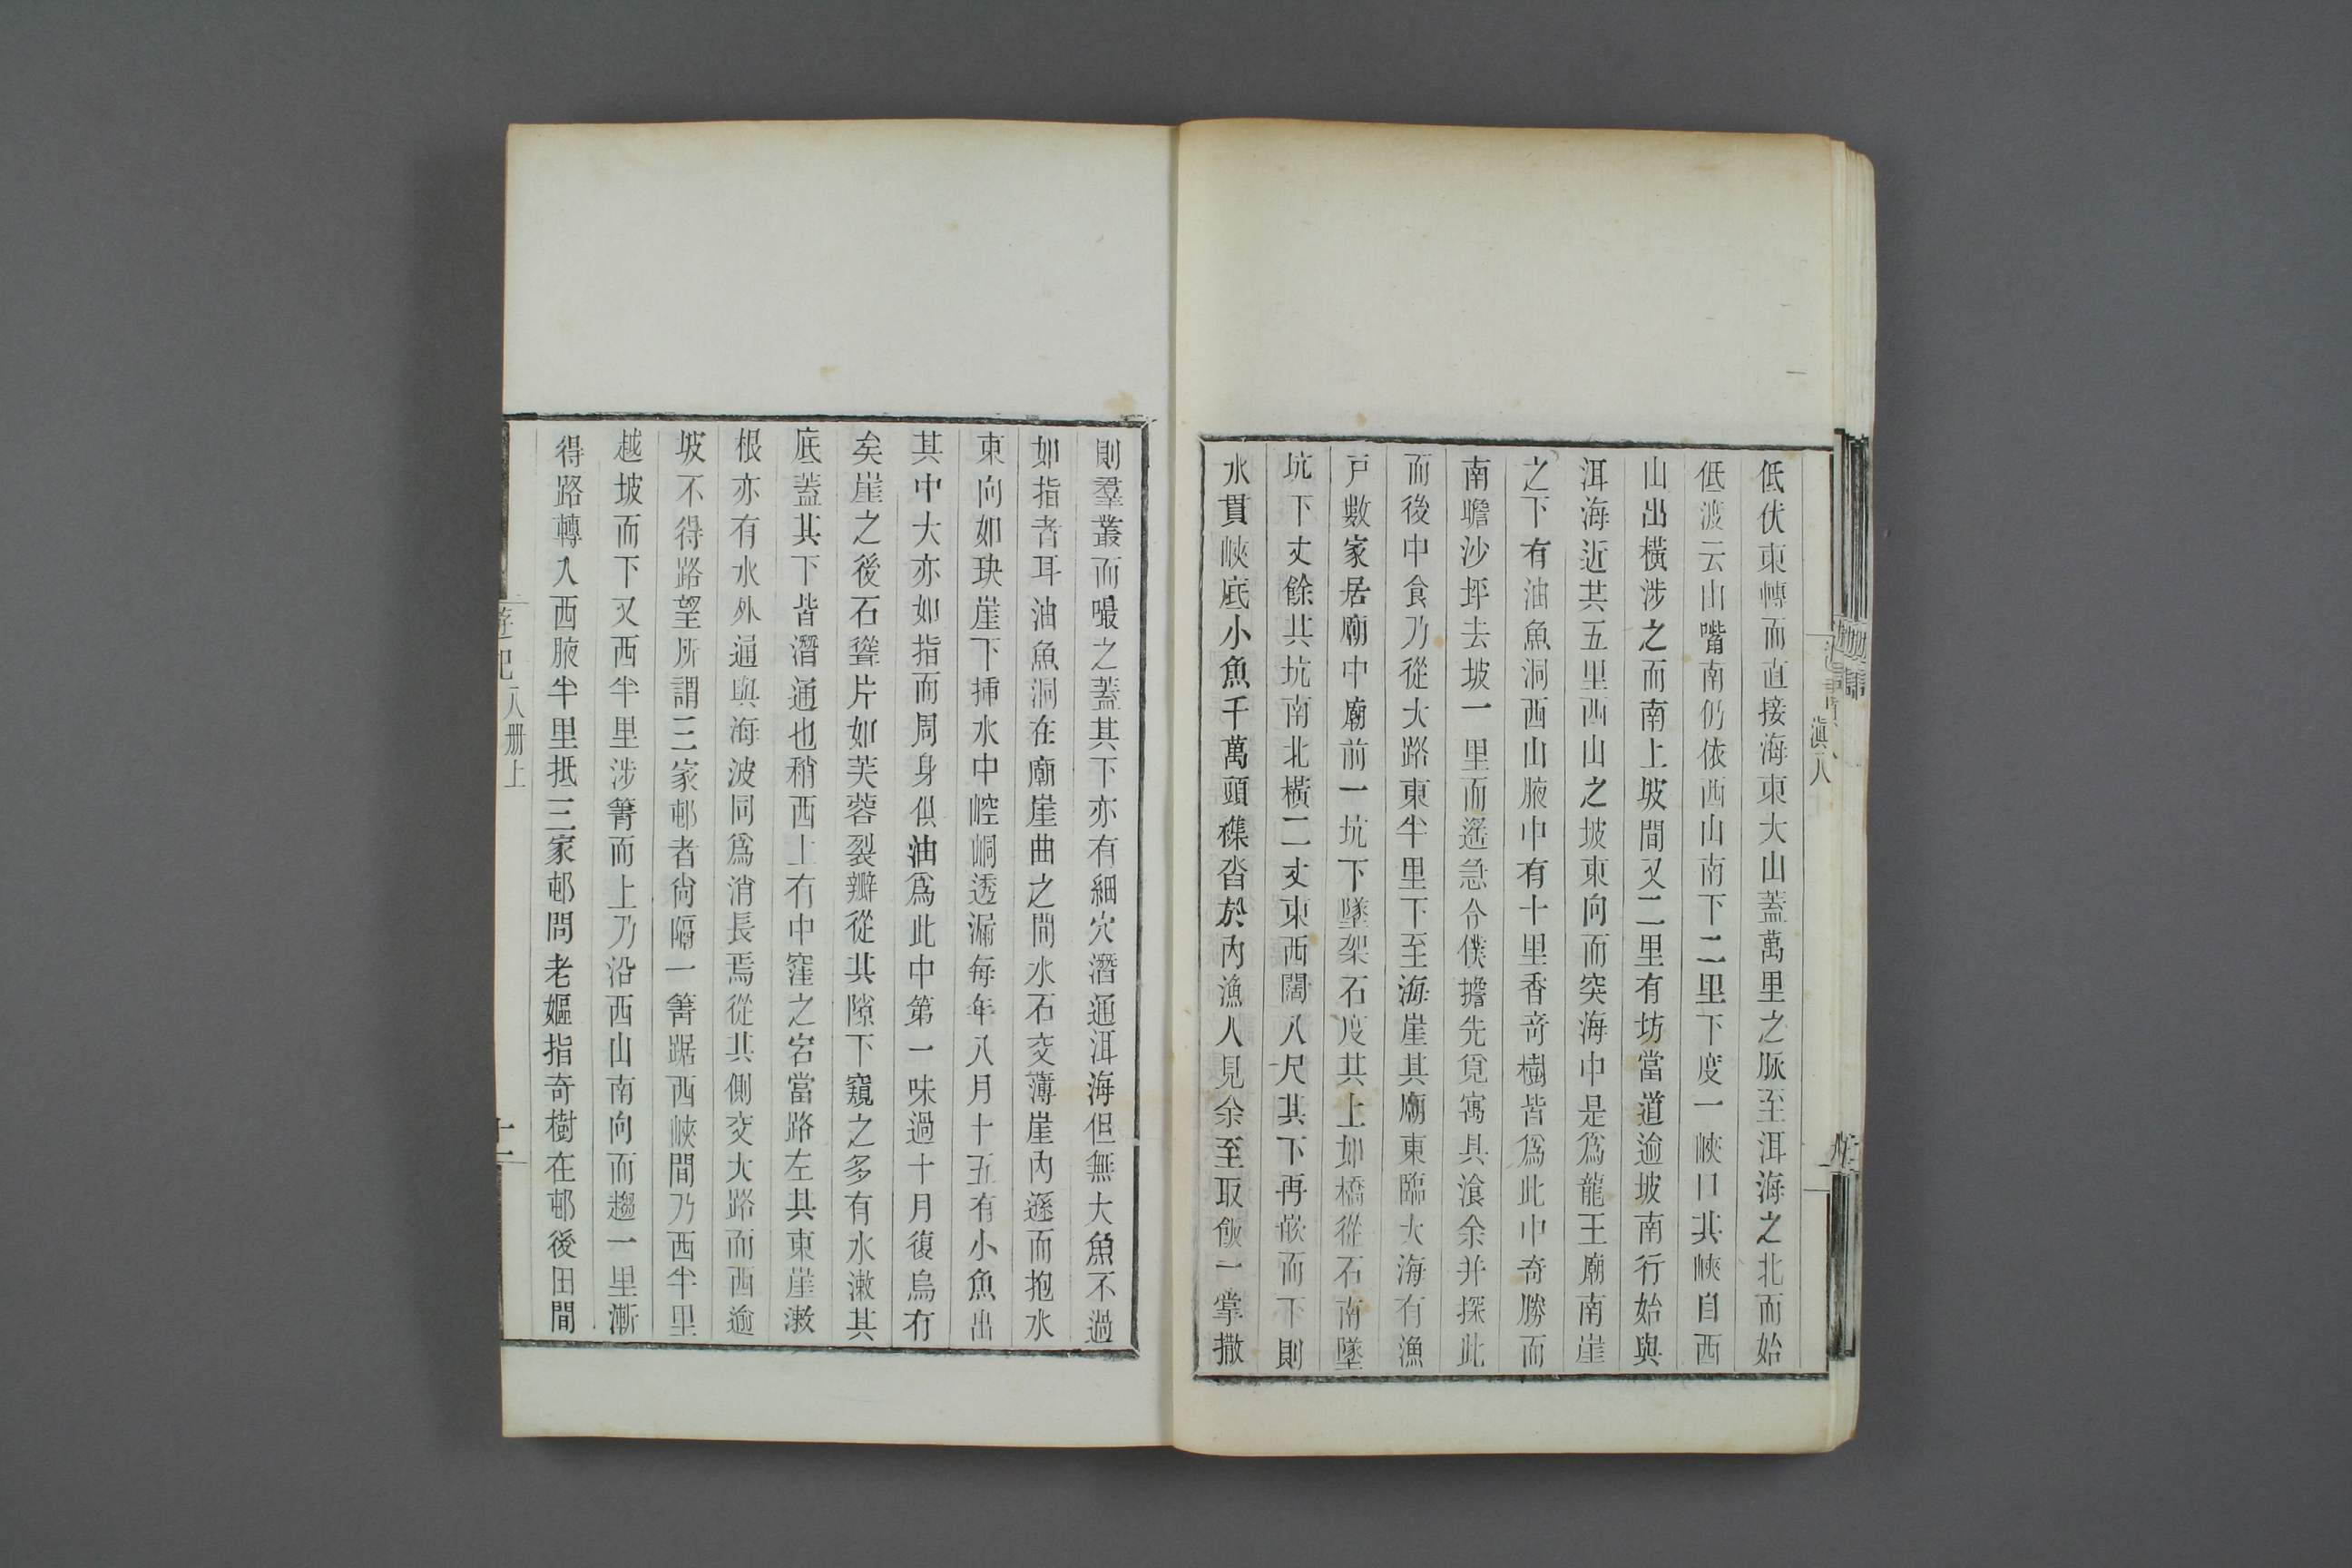 低伏東轉而直接海東大山蓋萬里之脈至洱海之北而始
低渡云山嘴南仍依西山南下二里下度一峽口其峽自西
山出橫涉之而南上坡間又二里有坊當道逾坡南行始與
洱海近共五里西山之坡東向而突海中是爲龍王廟南崖
之下有油魚洞西山腋中有十里香奇樹皆爲此中奇勝而
南瞻沙坪去坡一里而遙急令僕擔先覓寓具飡余幷探此
而後中食乃從大路東半里下至海崖其廟東臨大海有漁
戸數家居廟中廟前一坑下墜架石度其上如橋從石南墜
坑下丈餘其坑南北橫二丈東西闊八尺其下再嵌而下則
水貫峽底小魚千萬頭襍沓於內漁人見余至取飯一掌撒
則羣叢而嘬之蓋其下亦有細穴潛通洱海但無大魚不過
如指者耳油魚洞在廟崖曲之間水石交薄崖內遜而抱水
東向如玦崖下揷水中崆峒透漏每年八月十五有小魚出
其中大亦如指而周身俱油爲此中第一味過十月復烏有
矣崖之後石聳片如芙蓉裂瓣從其隙下窺之多有水漱其
底蓋其下皆潛通也稍西上有中窪之宕當路左其東崖漱
根亦有水外通與海波同爲消長焉從其側交大路而西逾
坡不得路望所謂三家邨者尙隔一箐踞西峽間乃西半里
越坡而下又西半里涉箐而上乃沿西山南向而趨一里漸
得路轉入西腋半里抵三家邨問老嫗指奇樹在邨後田間
滇八
遊記
八册上
十一